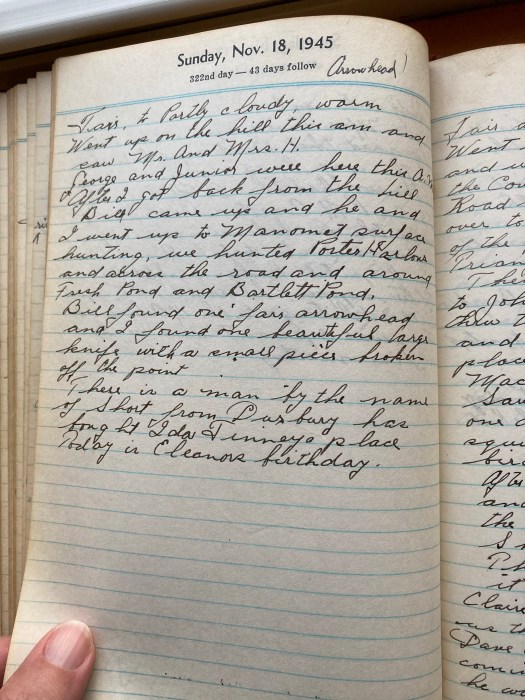 Sunday, Nov. 18, 1945
322nd day — 43 days follow
Arrowhead!
Fair, to Partly cloudy, warm
Went up on the hill this am and
saw Mr. And Mrs. H.
George and Junior were here this a.m.
After I got back from the hill
Bill came up and he and
I went up to Manomet surface
hunting, we hunted Porter Harbour
and across the road and around
Fresh Pond and Bartlett Pond.
Bill found one fair arrowhead
and I found one beautiful large
knife with a small piece broken
off the point
There is a man by the name
of Short from Duxbury has
bought Ida Finneys place
Today is Eleanors birthday.
Fair
Went
and
the
Road
over to
of the
to Joh
and
place
Mac
Saw
one
After
and
the
it
Claire
Dave
he